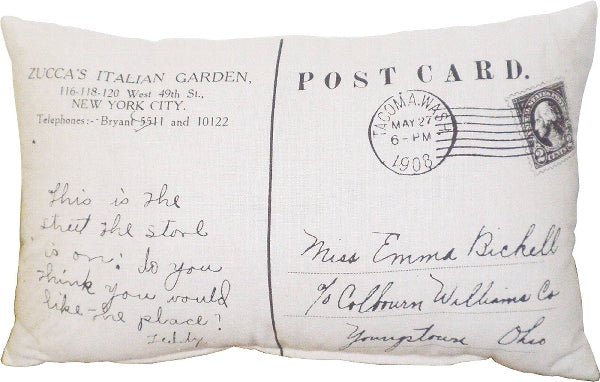 ZUCCA'S ITALIAN GARDEN,
116-118-120 West 49th St.,
NEW YORK CITY.
Telephones:- Bryant 5511 and 10122
This is the
street the store
is on: do you
think you would
like the place?
Teddy
POST CARD.
TACOMA, WASH.
MAY 27
6-PM
1908
2
Miss Emma Bickell
c/o Colbourn Williams Co
Youngstown Ohio